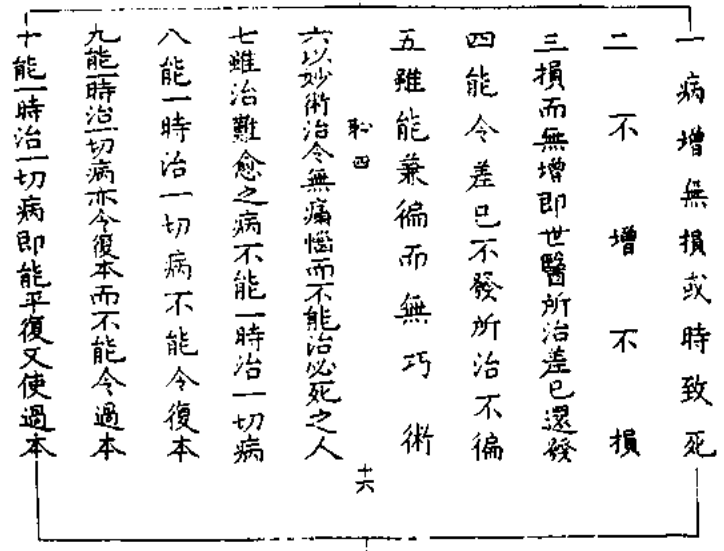 一病增無損或時致死
二不增不損
三損而無增即世醫所治差已還發
四能令差已不發所治不徧
五雖能兼徧而無巧術
恥四
十六
六以妙術治令無痛惱而不能治必死之人
七雖治難愈之病不能一時治一切病
八能一時治一切病不能令復本
九能一時治一切病亦令復本而不能令過本
十能一時治一切病即能平復又使過本